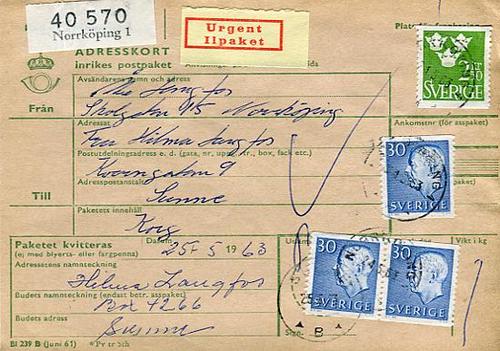 40 570
Norrköping 1
Urgent
Ilpaket
ADRESSKORT
inrikes postpaket
Avsändarens namn och adress
Från
Skolgatan 15 Norrköping
Adressat
Ankomstnr (för asspaket)
Fru Hilma
Postutdelningsadress e. d. (gata, nr, uppg., tr., box, fack etc.)
Kvarngatan 9
Adresspostanstalt
Till
Sunne
Paketets innehåll
Korg
Paketet kvitteras
(ej med blyerts- eller färgpenna)
Datum
25/5 1963
Vikt i kg
Adressatens namnteckning
Hilma Langfos
Budets namnteckning (endast betr. asspaket)
Box 4266
Budets adress
Sunne
Bl 239 B (juni 61)
SVERIGE
30
SVERIGE
30
SVERIGE
30
SVERIGE
B